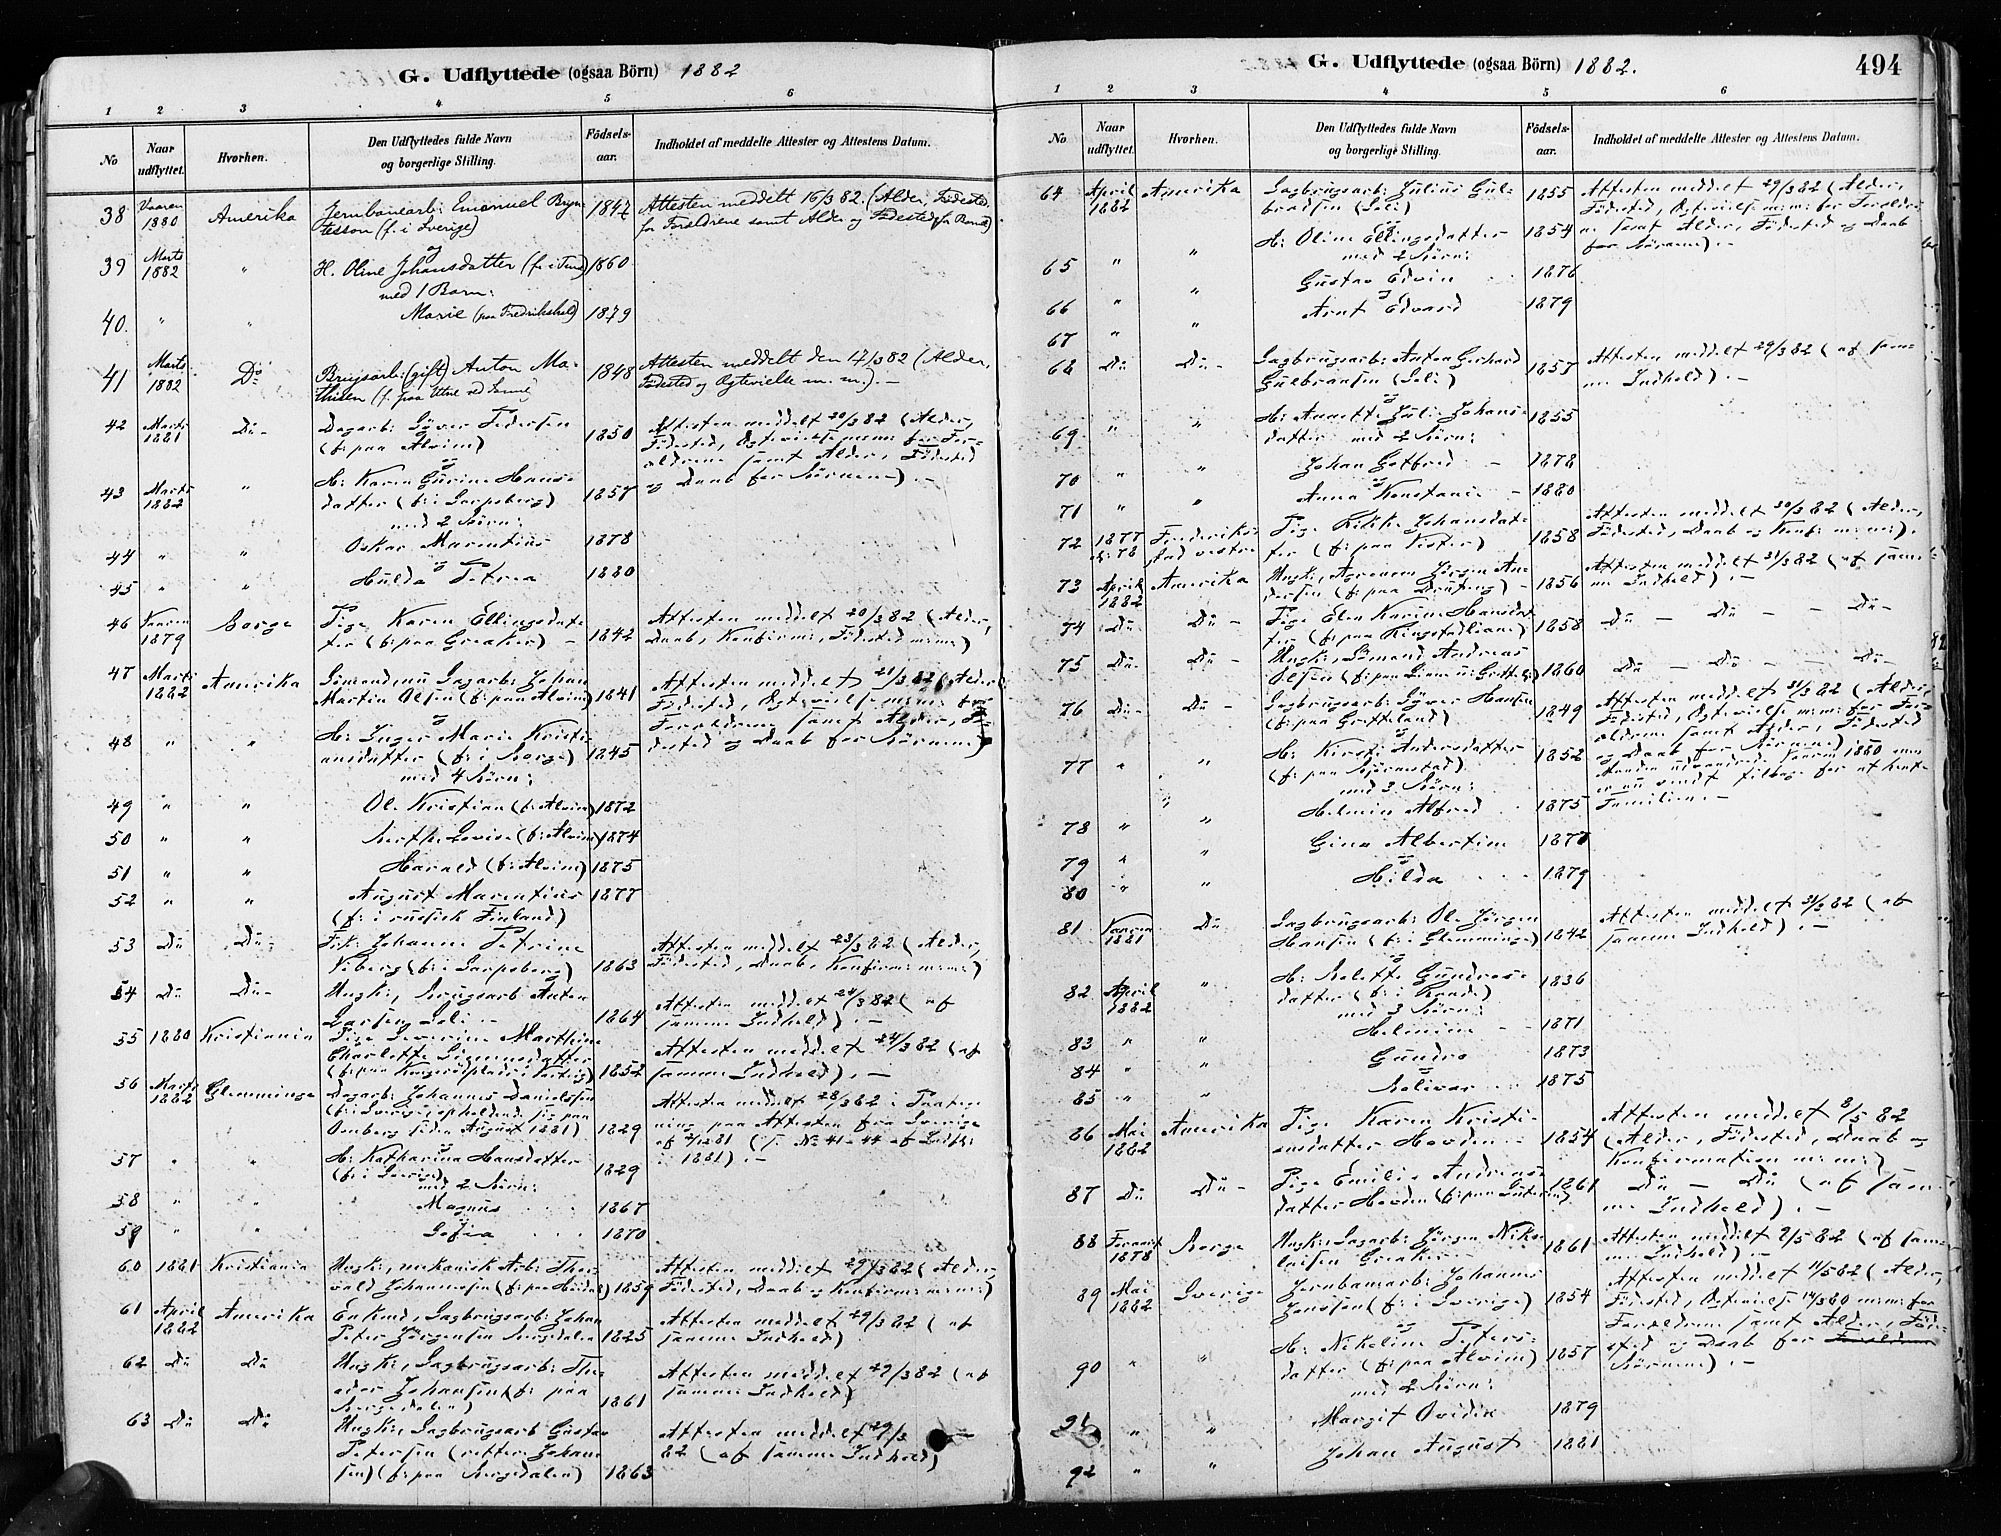 G. Udflyttede (ogsaa Börn) 1882
1 2 3 4 5 6
No
Naar udflyttet.
Hvorhen.
Den Udflyttedes fulde Navn og borgerlige Stilling.
Födsels-aar.
Indholdet af meddelte Attester og Attestens Datum.
38 Vaaren 1880 Amerika Jernbanearb: Emanuel 1847 Attesten meddelt 16/3 82. (Alder, Födested
tesson (f. i Sverige) for Forældrene samt Alder og Födested for Barnet)
og
39 Marts 1882 " H. Oline Johansdatter (f. i Tune) 1860
med 1 Barn:
40. " " Marie (paa Fredrikshald) 1879
41 Marts 1882 Do Brugsarb: (gift) Anton Ma- 1848 Attesten meddelt den 17/3 82 (Alder,
thisen Födested og Ægtevielse m. m.). -
42 Marts 1881 Do - Dagarb: Syver Pedersen 1850 Attesten meddelt 20/3 82 (Alder,
(f: paa Alvim) Födested, Ægtevielse m:m: for For-
og ældrene samt Alder, Födested
43 Marts 1882 " H: Karen Gurine Hans- og Daab for Börnene). -
datter (f: i Sarpsborg) 1857
med 2 Börn:
44 " " Oskar Marentius 1878
og
45 " " Hulda Petrea 1880
46 Vaaren 1879 Borge Pige Karen Ellingsdat- Attesten meddelt 20/3 82 (Alder,
ter (f: paa Greaker) - 1842 Daab, Konfirm:, Födested m:m:)
47 Marts 1882 Amerika Sömand nu Sagarb: Johan Attesten meddelt 21/3 82 (Alder
Martin Olsen (f: paa Alvim) 1841 Födested, Ægtevielse m:m: for
og Forældrene samt Alder, Fö-
48 " " H: Inger Marie Kristi- dested og Daab for Börnene)
ansdatter (f: i Borge) 1845
med 4 Börn:
49 " " Ole Kristian (f: Alvim) 1872
50 " " Berthe Lovise (f: Alvim) 1874
51 " " Harald (f: Alvim) 1875
52 " " August Marentius 1877
(f: i russisk Finland)
53 Do Do- Frk: Johanne Petrine Attesten meddelt 23/3 82 (Alder,
Viberg (f: i Sarpsborg) 1863 Födested, Daab, Konfirm: m:m:)
54 Do Do- Ungk:, Brugsarb: Anton Attesten meddelt 24/3 82 (af
Larsen Soli - 1864 samme Indhold). -
55 1880 Kristiania Pige Severine Marthine Attesten meddelt 24/3 82 (af
Charlotte Simensdatter samme Indhold). -
1852
56 Marts 1882 Glemminge Dagarb: Johannes Danielsen Attesten meddelt 28/3 82 i
(f: i Sverige, opholdende sig paa paa Attesten fra Sverige
siden August 1881) 1829 No 41-44
og i 1881). -
57 " " H: Katharina Hansdatter 1829
(f: i Sverige)
med 2 Börn:
58 " " Magnus 1867
og
59 " " Sofia 1870
60 1881 Kristiania Ungk:, mekanisk Arb: Thor- Attesten meddelt 29/3 82 (Alder,
vald Johannesen 1859 Födested, Daab og Konfirm: m:m:)
61 April 1882 Amerika Enkemd, Sagbrugsarb: Johan Attesten meddelt 29/3 82 (af
Peter Jörgensen Bergdalen 1825 samme Indhold)
62 Do Do Ungk:, Sagbrugsarb: The- Attesten meddelt 29/3 82 (af
odor Johansen (f: paa samme Indhold)
Bergdalen) 1861
63 Do Do Ungk:, Sagbrugsarb: Gustav Attesten meddelt 29/3
Petersen (retter Johan- 82 (af samme Indhold)
sen) (f: paa Bergdalen) 1863
G. Udflyttede (ogsaa Börn) 1882.
494
1 2 3 4 5 6
No
Naar udflyttet.
Hvorhen.
Den Udflyttedes fulde Navn og borgerlige Stilling.
Födsels-aar.
Indholdet af meddelte Attester og Attestens Datum.
64 April 1882 Amerika Sagbrugsarb: Julius Gul- 1855 Attesten meddelt 29/3 82 (Alder,
bransen (Soli) Födested, Ægtevielse m:m: for Foræld-
og ne samt Alder, Födested og Daab
65 " " H: Oline Ellingsdatter 1854 for Börnene). -
med 2 Börn:
66 " " Gustav Edvin 1876
og
67 " " Arnt Edvard 1879
68 Do Do- Sagbrugsarb: Anton Gerhard Attesten meddelt 29/3 82 (af sam-
Gulbransen (Soli) 1857 me Indhold). -
og
69 " " H: Annette Juli Johans- 1855
datter med 2 Börn:
70 " " Johan Gotfred - 1878
og
71 " " Anna Konstanse - 1880
72 1877 el: 78 Frederiks- Pige Rikke Johansdat- Attesten meddelt 30/3 82 (Alder,
stad vestre ter (f: paa Vister) 1858 Födested, Daab og Konf: m:m:).
73 April 1882 Amerika Ungk:, Agronom Jörgen An- Attesten meddelt 31/3 82 (af sam-
dersen 1856 me Indhold). -
74 Do Do - Pige Elen Karine Hansdat-
ter 1858 Do - Do - - Do -
75 Do Do - Ungk:, Sömand Andreas
Olsen 1860 Do - Do - - Do -
76 Do- Do - Sagbrugsarb: Syver Hansen Attesten meddelt 31/3 82 (Alder,
(f: paa Gretteland) 1849 Födested, Ægtevielse m:m: for For-
og ældrene samt Alder, Födested
77 " " H: Kirsti Andersdatter 1852 og Daab for Börnene)
(f: paa Björnstad) Manden udvandrede Vaaren 1880 men
med 3 Börn: er nu vendt tilbage for at hente
" Helmin Alfred 1875 Familien. -
78 " " Gina Albertine 1878
og
79 " " Hilda 1879
80 " "
81 Vaaren 1881 Do Sagbrugsarb: Ole Jörgen Attesten meddelt 31/3 82 (af
Hansen (f: i Glemminge) 1842 samme Indhold). -
og
82 April 1882 " H: Bolette Gundros- 1836
datter (f: i Raade)
med 3 Börn:
83 " " Helmine - 1871
84 " " Gundro 1873
og
85 " " Bolivar 1875
86 Mai 1882 Amerika Pige Karen Kristi- Attesten meddelt 8/5 82
ansdatter Hovden - 1854 (Alder, Födested, Daab og
Konfirmation m:m:)
87 Do Do- Pige Emilie Andreas- 1861 Do - Do (af sam-
datter Hovden me Indhold). -
88 1878 Borge Ungk: Sagarb: Jörgen Niko- 1861 Attesten meddelt 9/5 82 (af sam-
laisen Greaker me Indhold). -
89 Mai 1882 Sverige Jernbanearb: Johannes Attesten meddelt 11/5 82 (Alder,
Jonssen (f: i Sverige) 1854 Födested, Ægtevielse 14/3 80 m:m: for
og Forældrene samt Alder, Föde-
90 " " H: Nikoline Peters- sted og Daab for Forældrene
datter (f: paa Alvim) 1857 Börnene). -
med 2 Börn:
91 " " Margit Ovidie 1879
og
92 " " Johan August 1881